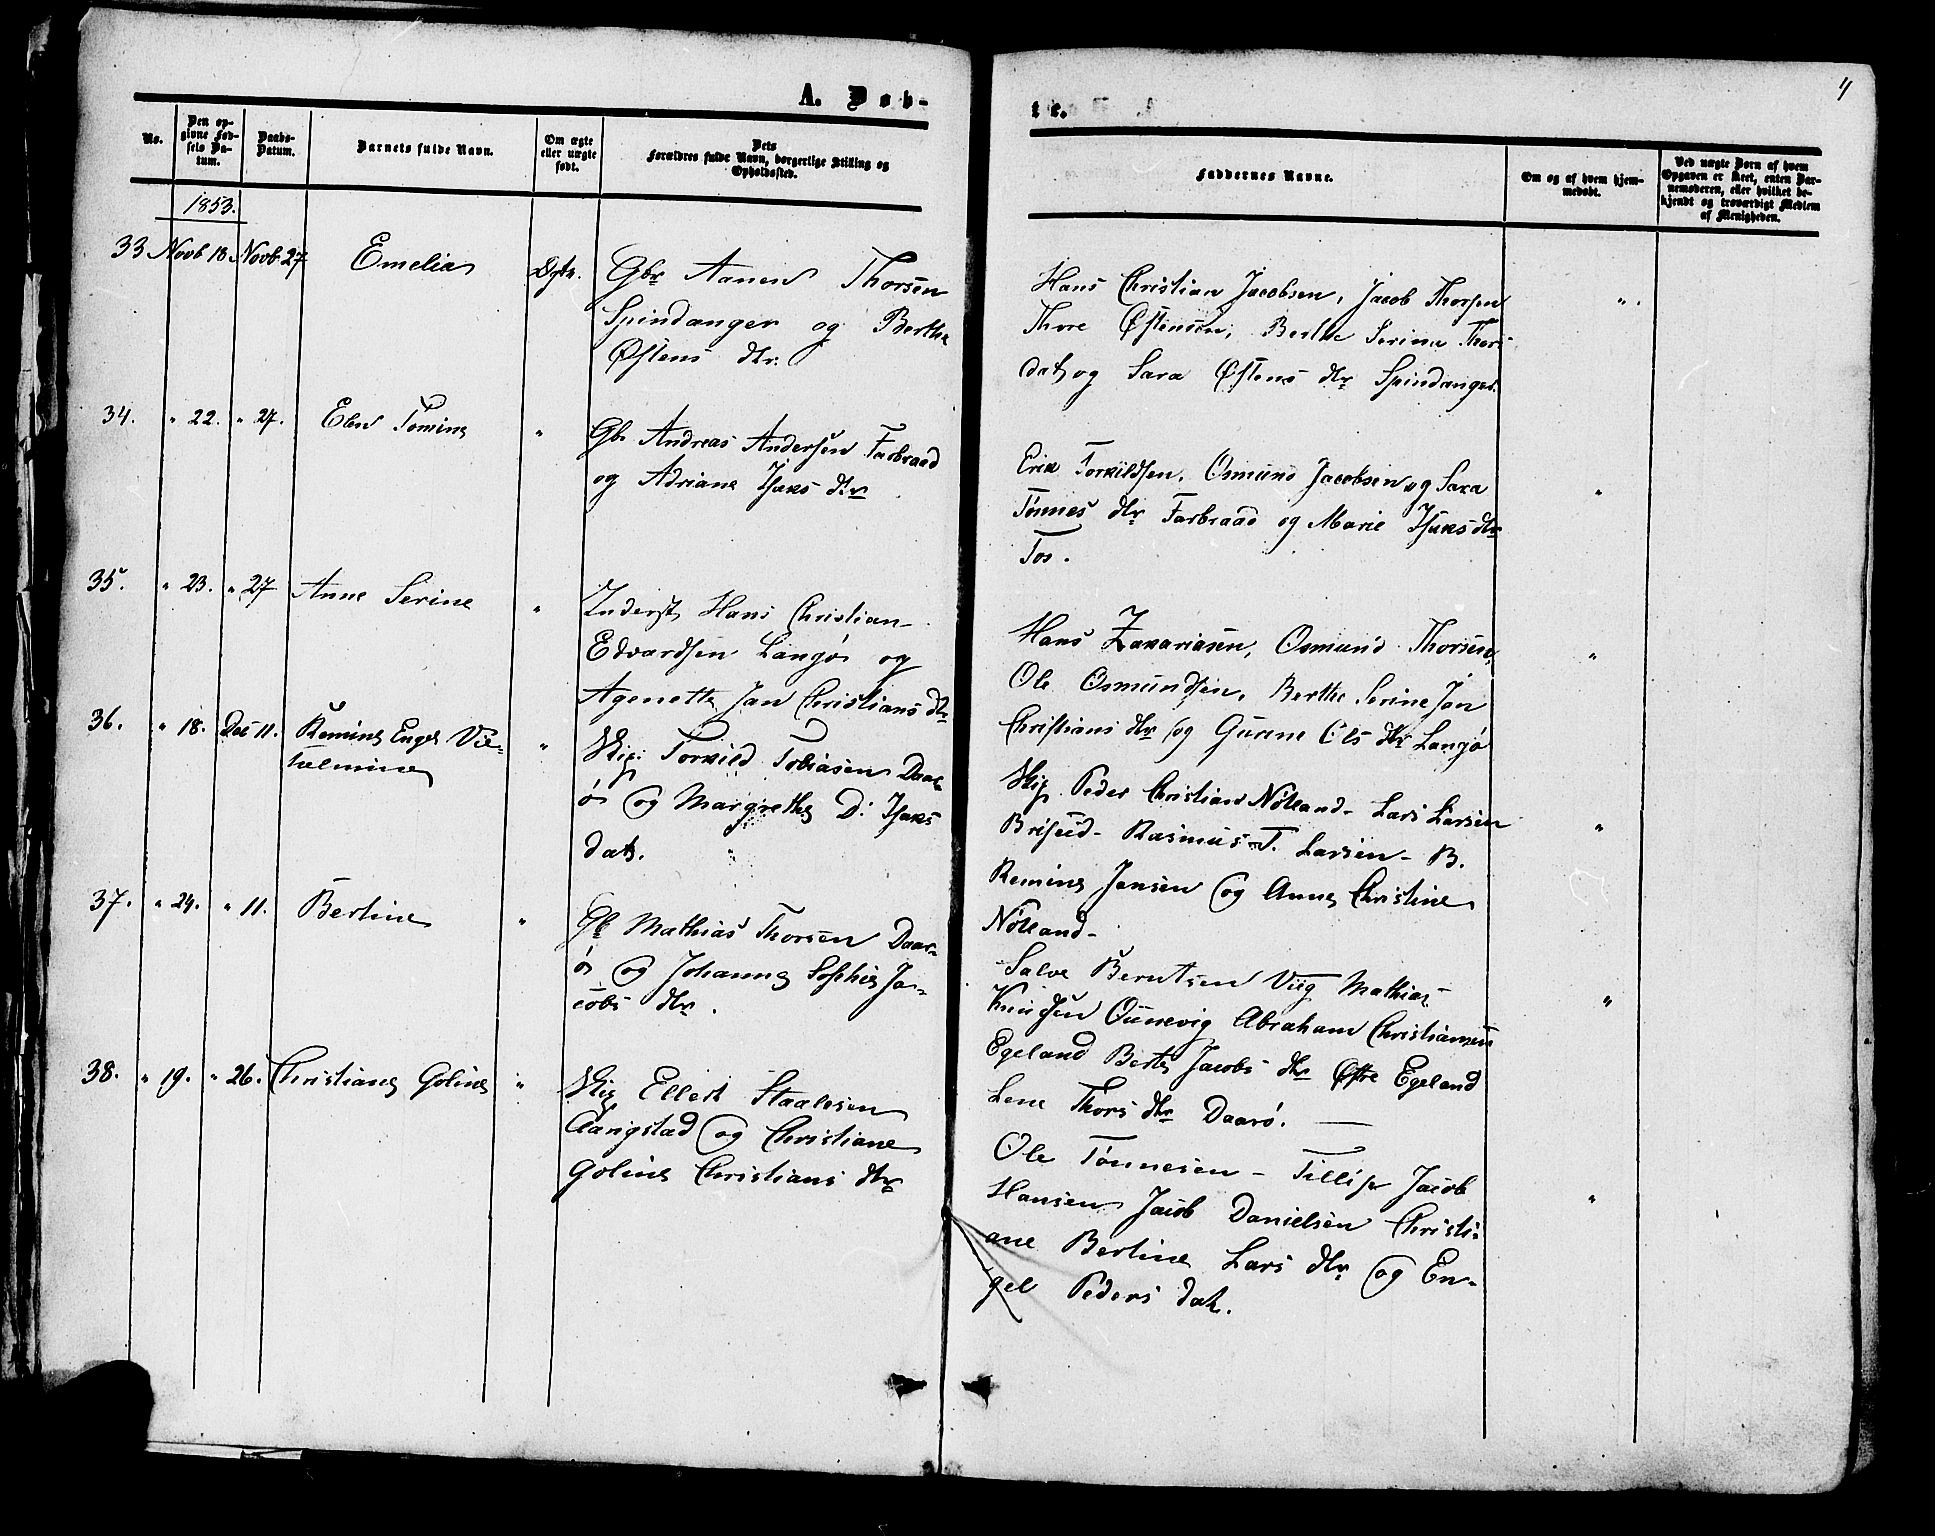 4
A. Døb-
te.
No.
Den op-
givne Fød-
sels Da-
tum.
Daabs-
Datum.
Barnets fulde Navn.
Om ægte
eller uægte
født.
Dets
Forældres fulde Navn, borgerlige Stilling og
Opholdssted.
Faddernes Navne.
Om og af hvem hjem-
medøbt.
Ved uægte Børn af hvem
Opgaven er skeet, enten Bar-
nemoderen, eller hvilket be-
kjendt og troværdigt Medlem
af Menigheden.
1853.
33 Novb 13. Novb 27 Emelia Ægte.
Gbr Aanen Thorsen
Spindanger og Berthe
Østens dtr.
Hans Christian Jacobsen, Jacob Thorsen
Thore Østensen, Berthe Serine Thors
dat, og Sara Østens dtr Spindanger.
".
34. " 22. " 27. Elen Tomine "
Gbr Andreas Andersen Farbraad
og Adriane Isaks dtr.
Erik Torkildsen, Osmund Jacobsen og Sara
Tønnes dtr Farbraad og Marie Isaks dtr
Tos.
"
35. " 23. " 27 Anne Serine "
Inderst Hans Christian
Edvardsen Langø og
Agenette Jan Christians dtr
Hans Zakariasen, Osmund Thorsen,
Ole Osmundsen, Berthe Serine Jan
Christians dtr og Gurine Ols dtr Langø
"
36. " 18. Dec 11. Remine Engel Vil-
helmine "
Skip. Torkild Tobiasen Daar-
ø og Margrethe D. Isaks
dat.
Skip Peder Christian Nøtland - Lars Larsen
Rasmus T. Larsen - B.
Remine Jensen og Anne Christine
Nøtland -
"
37. " 24. " 11. Bertine "
Gb Mathias Thorsen Daar-
ø og Johanne Sophie Ja-
cobs dtr.
Salve Berntsen Viig Mathias
Knudsen Ounevig Abraham Christiansen
Egeland Berte Jacobs dtr Østre Egeland
Lene Thors dtr Daarø. —
"
38. " 19. " 26. Christiane Goline "
Skip Ellert Staalesen
Aangstad og Christiane
Goline Christians dtr
Ole Tønnesen - Jacob
Hansen Jacob Danielsen Christi-
ane Bertine Lars dtr og En-
gel Peders dat.
"